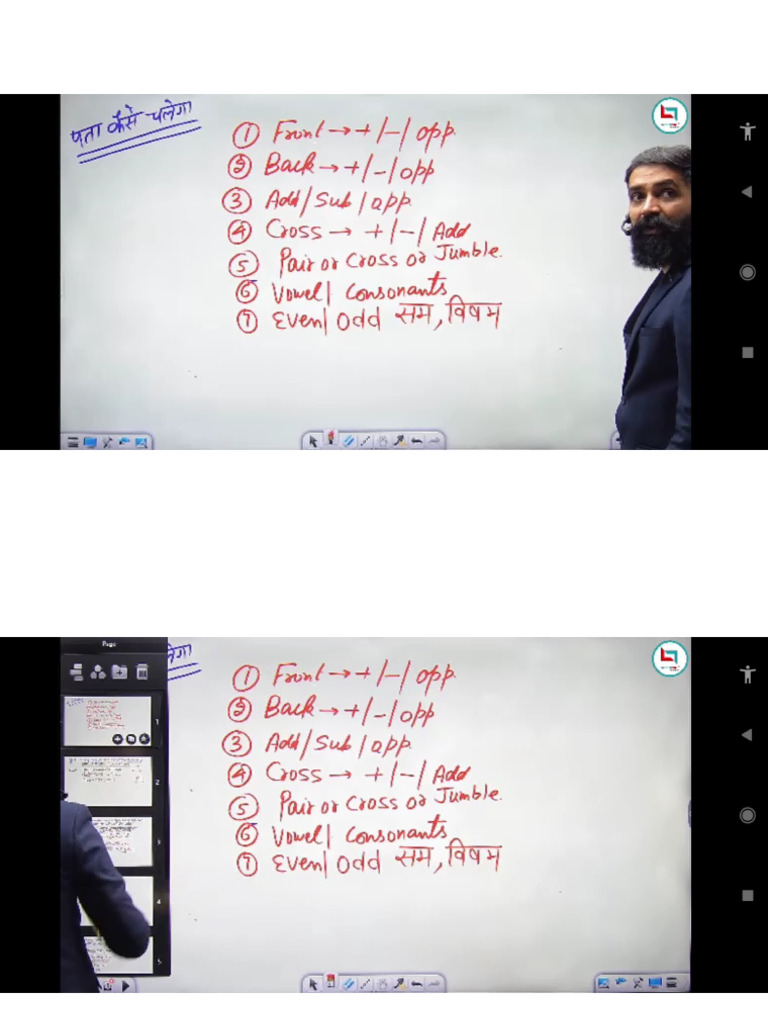 पता कैसे चलेगा
① Front → + / - / opp.
② Back → + / - / opp
③ Add / Sub / opp.
④ Cross → + / - / Add
⑤ Pair or Cross or Jumble.
⑥ Vowel / Consonants
⑦ Even / Odd सम, विषम
Page
लेगा
① Front → + / - / opp.
② Back → + / - / opp
③ Add / Sub / opp.
④ Cross → + / - / Add
⑤ Pair or Cross or Jumble.
⑥ Vowel / Consonants
⑦ Even / Odd सम, विषम
1
2
3
4
5